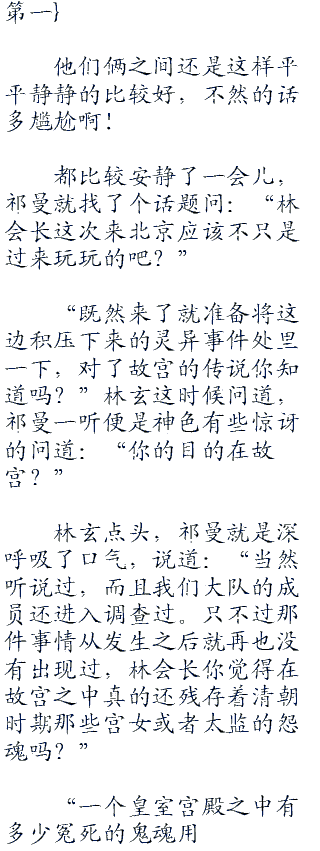 第一}
他们俩之间还是这样平
平静静的比较好，不然的话
多尴尬啊！
都比较安静了一会儿，
祁曼就找了个话题问：“林
会长这次来北京应该不只是
过来玩玩的吧？”
“既然来了就准备将这
边积压下来的灵异事件处里
一下，对了故宫的传说你知
道吗？”林玄这时候问道，
祁曼一听便是神色有些惊讶
的问道：“你的目的在故
宫？”
林玄点头，祁曼就是深
呼吸了口气，说道：“当然
听说过，而且我们大队的成
员还进入调查过。只不过那
件事情从发生之后就再也没
有出现过，林会长你觉得在
故宫之中真的还残存着清朝
时期那些宫女或者太监的怨
魂吗？”
“一个皇室宫殿之中有
多少冤死的鬼魂用